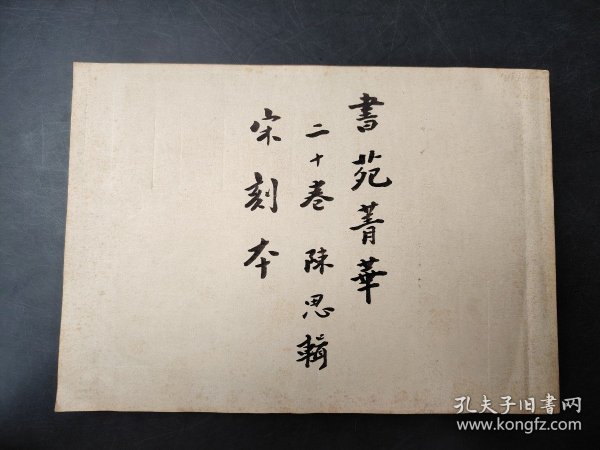 書苑菁華
二十卷 陳思輯
宋刻本
孔夫子旧書网
www.kongfz.com